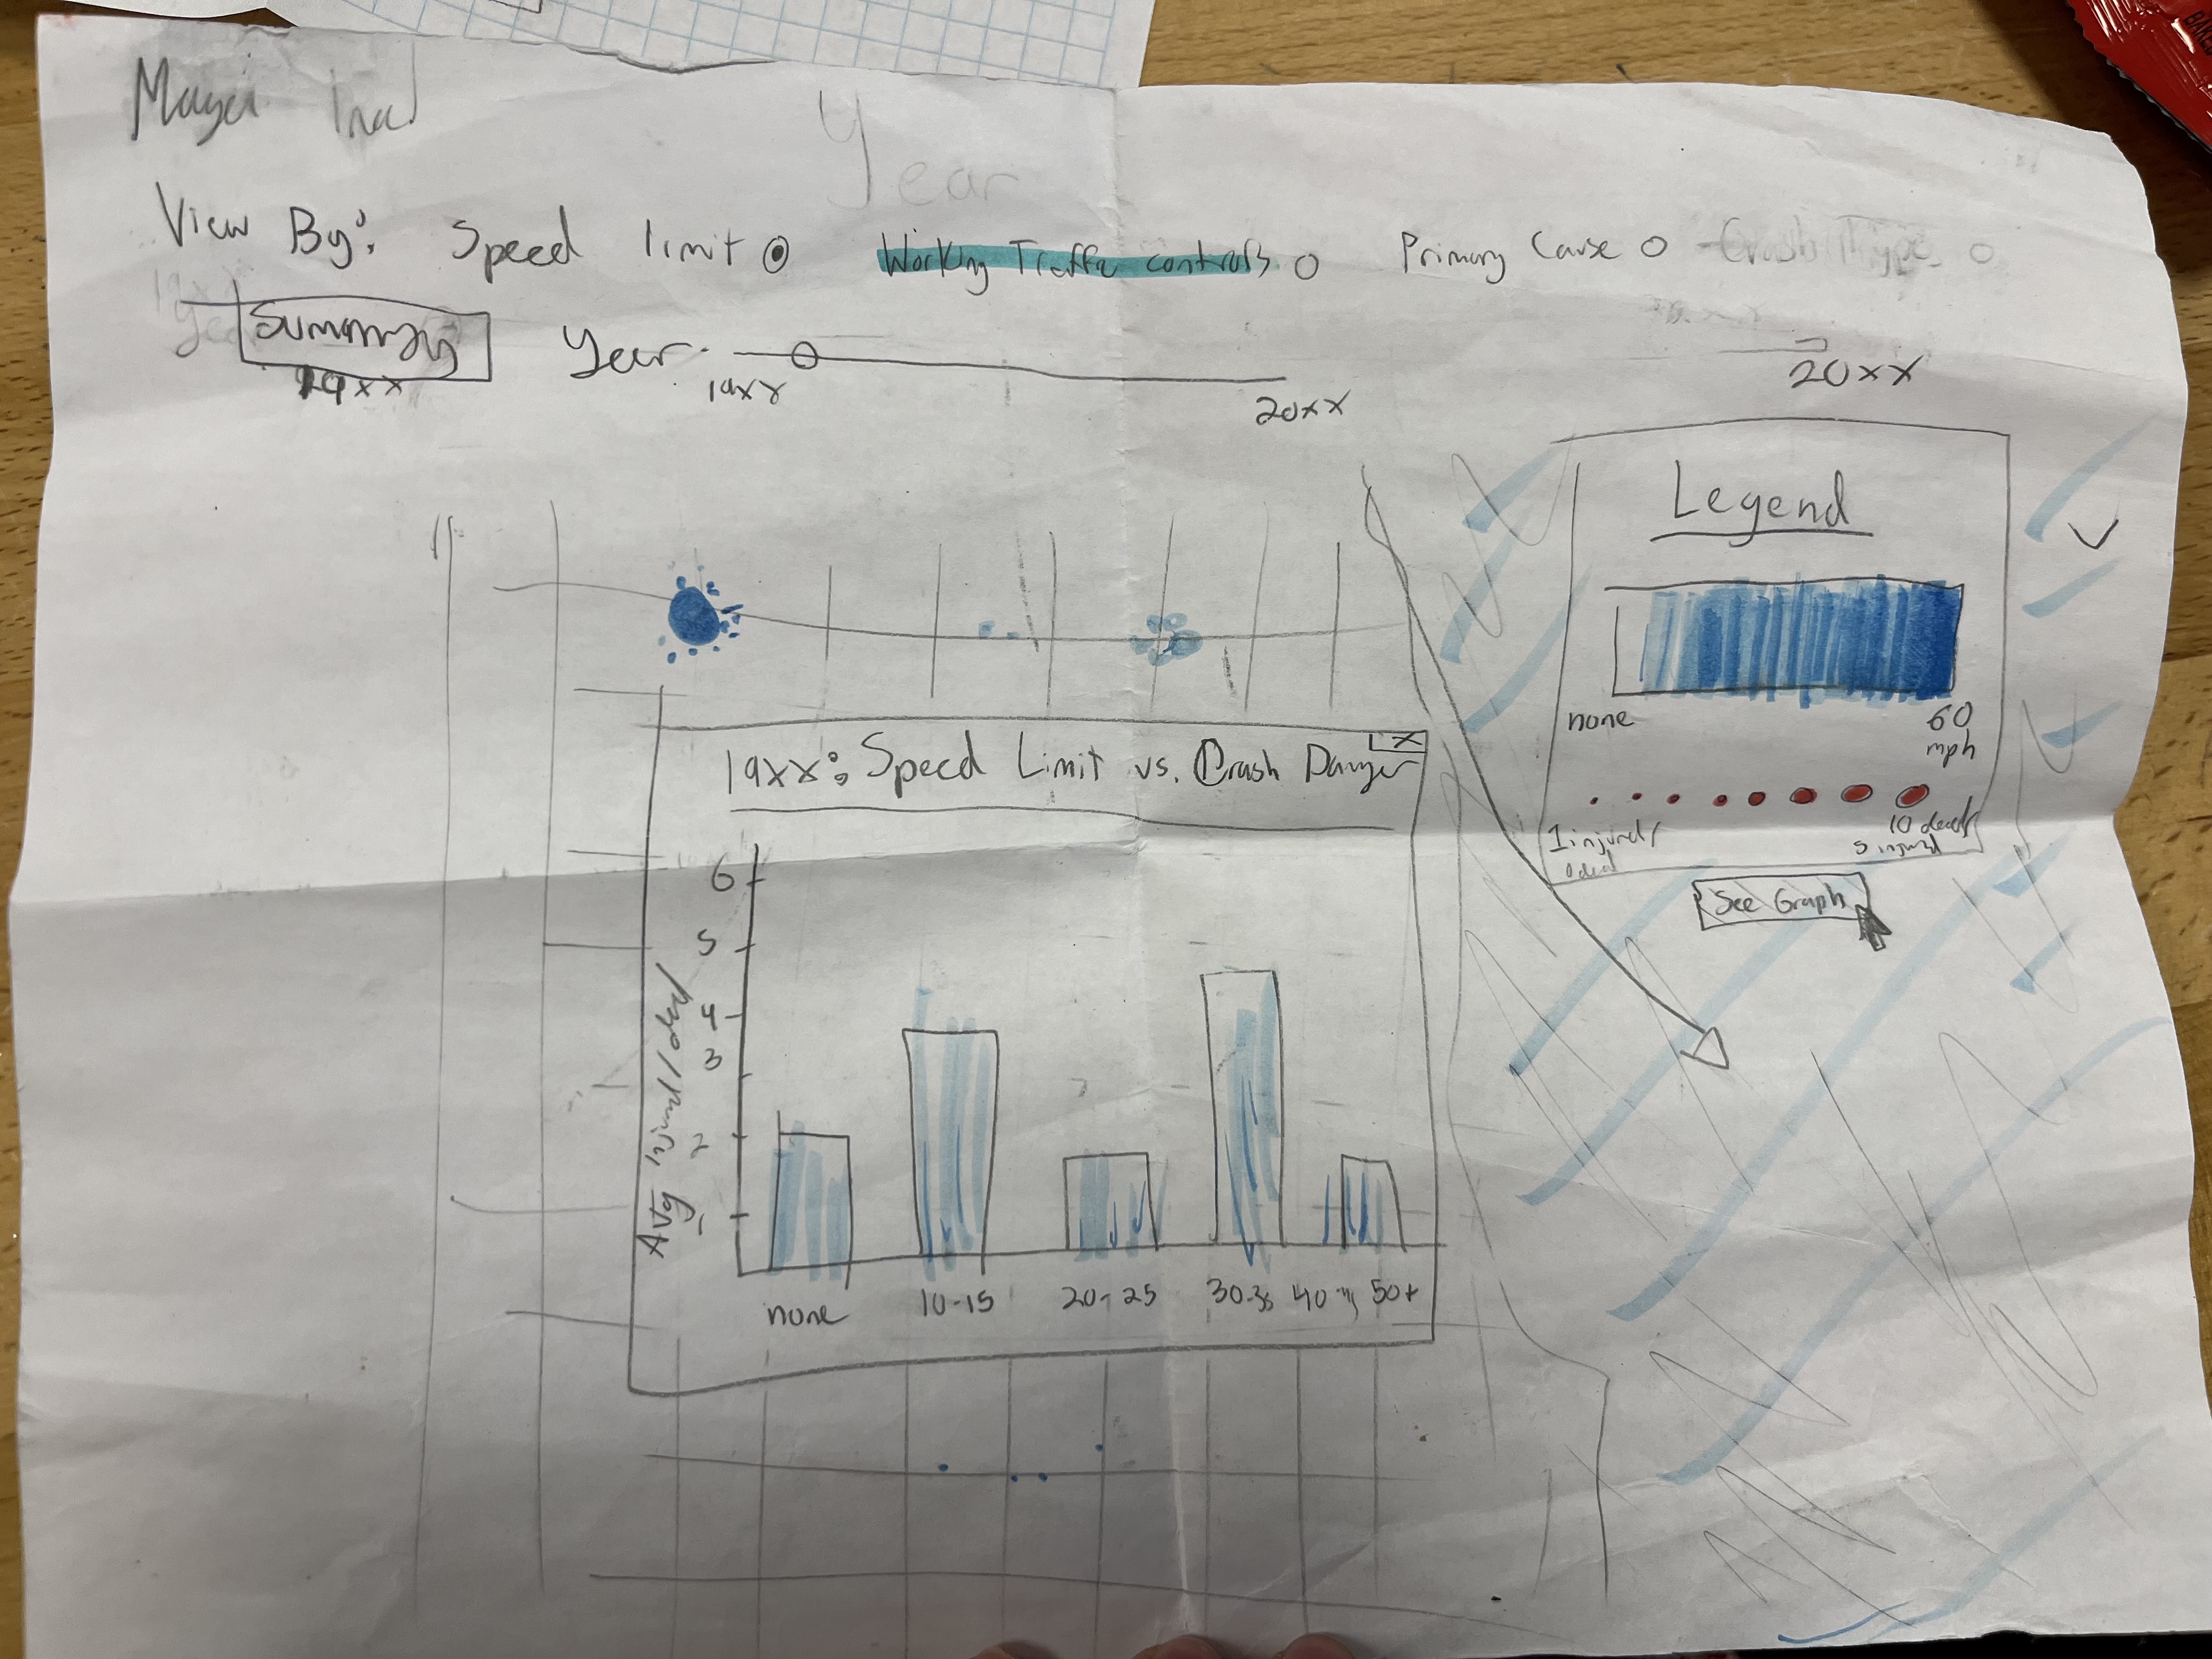 Year
View By: Speed limit Working Traffic controls Primary Cause Crash Type
Summary Year
19xx
19xx
20xx
20xx
Legend
none
60
mph
1 injured/
0 dead
10 dead/
5 injured
See Graph
x
19xx: Speed Limit vs. Crash Danger
6
5
4
3
2
1
Avg injured/dead
none 10-15 20-25 30-35 40- 50+